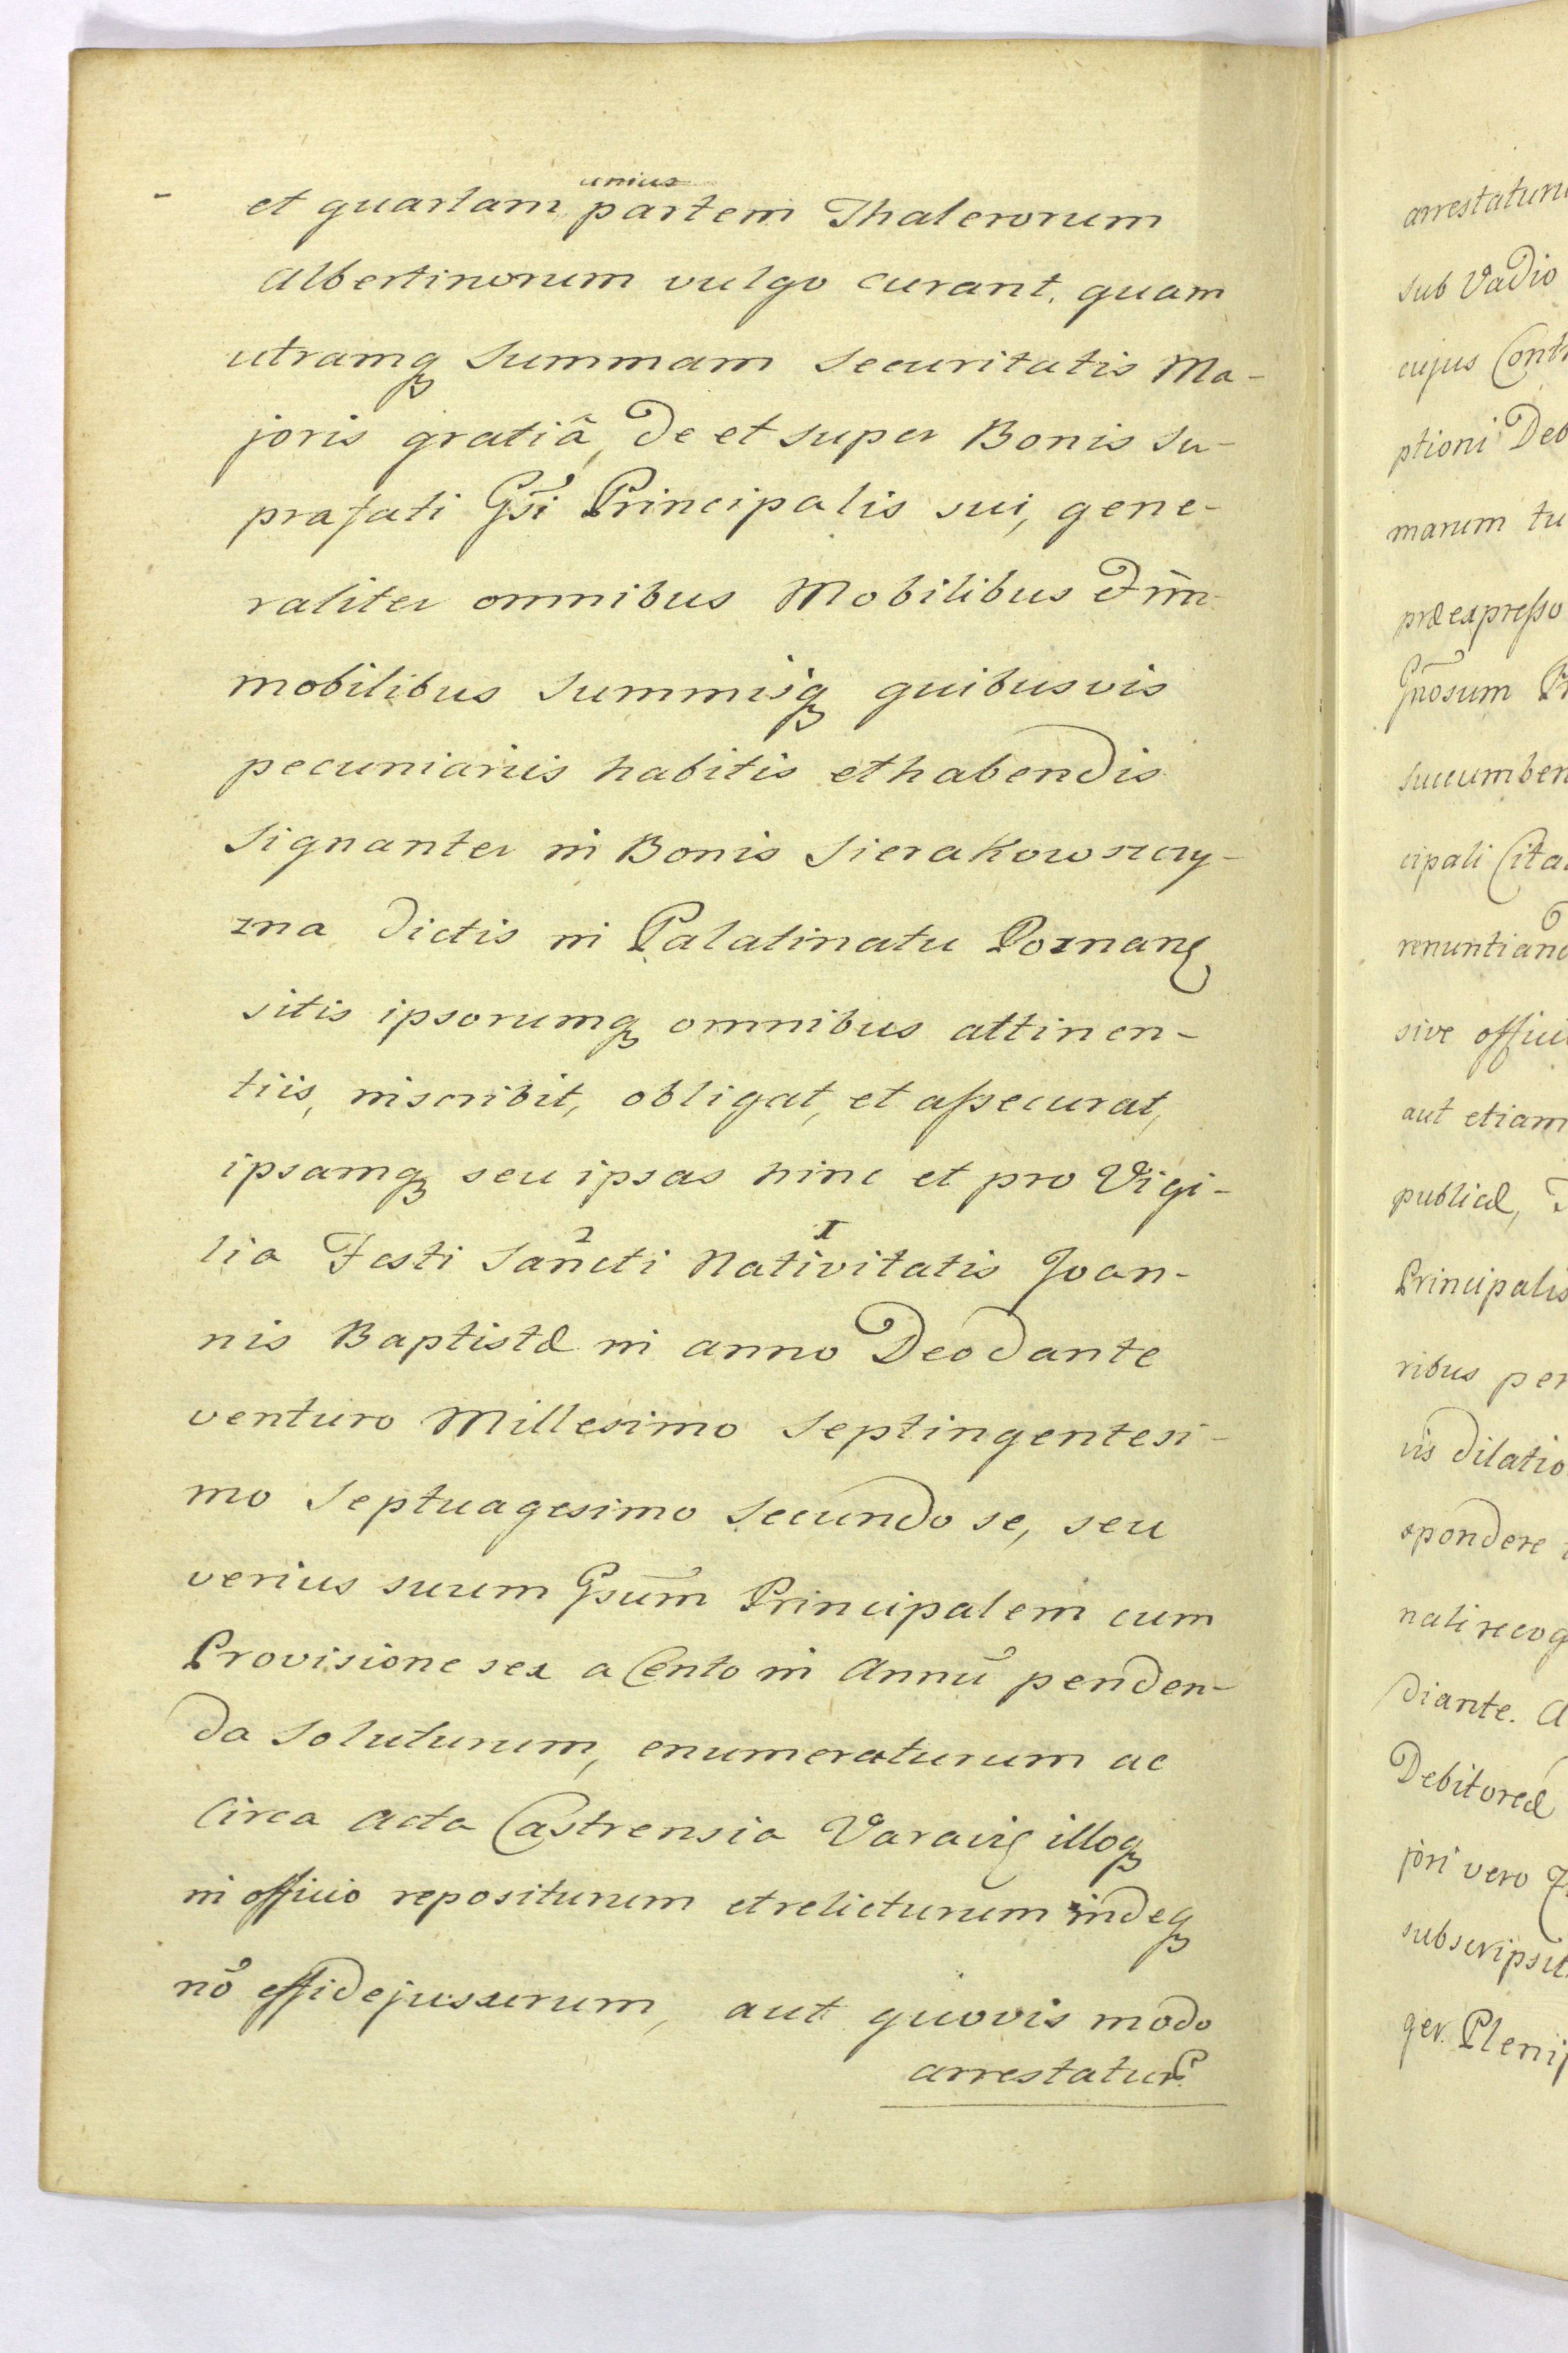 unius
- et quartam partem Thalerorum
Albertinorum vulgo curant. quam
utramqȝ Summam Securitatis Ma-
joris gratiâ, De et super Bonis su-
prafati Gsi Principalis sui, gene-
raliter omnibus Mobilibus et im-
mobilibus Summisqȝ quibusvis
pecuniariis habitis et habendis
Signanter in Bonis Sierakowszczy-
zna dictis in Palatinatu Poznanȩ
sitis ipsorumqȝ omnibus attinen-
tiis, inscribit, obligat, et assecurat,
ipsamqȝ seu ipsas hinc et pro Vigi-
2 I
lia Festi Sancti Nativitatis Joan-
nis Baptistæ in anno Deo Dante
venturo Millesimo Septingentesi-
mo Septuagesimo Secundo se, seu
verius suum Gsum Principalem cum
Provisione sex a Cento in Annū penden-
da Soluturum, enumeraturum ac
Circa Acta Castrensia Varaviȩ illoqȝ
in officio repositurum et relicturum indeqȝ
nō effidejussurum, aut quovis modo
arrestatur̃
arrestatum
sub Vadio
cujus Cont
ptioni Deb
marum tu
præexpresso
Gnosum Pr
succumben
cipali Cita
renuntian
sive offici
aut etiam
publicæ,
Principalis
ribus per
vis dilatio
spondere
nali recog
diante. A
Debitoreæ
jori vero
subscripsit
ger. Plenip